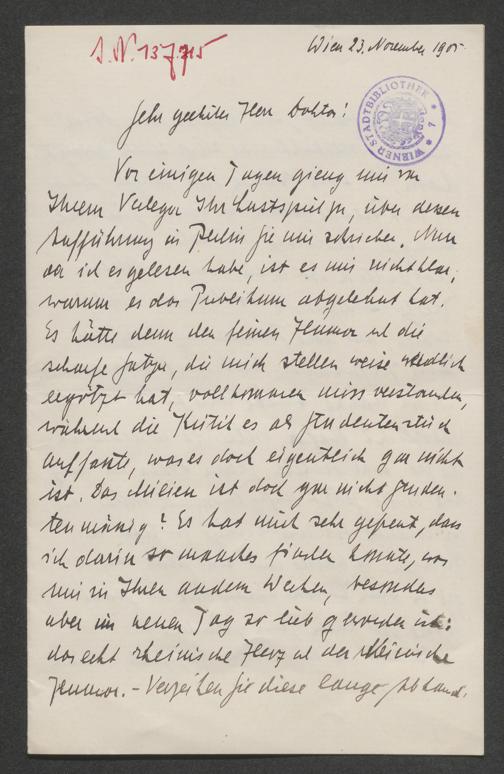 J.N. 137.715
Wien 23. November 1905
WIENER STADTBIBLIOTHEK
Sehr geehrter Herr Doktor!
Vor einigen Tagen gieng mir von
Ihrem Verleger Ihr Lustspiel zu, über dessen
Aufführung in Berlin Sie mir schrieben. Nun
da ich es gelesen habe, ist es mir nicht klar,
warum es das Publikum abgelehnt hat.
Es hätte denn den feinen Humor u die
scharfe Satyre, die mich stellenweise redlich
ergötzt hat, vollkommen missverstanden,
während die Kritik es als Studentenstück
auffasste, was es doch eigentlich gar nicht
ist. Das Milieu ist doch gar nicht studen-
tenmässig? Es hat mich sehr gefreut, dass
ich darin so manches finden konnte, was
mir in Ihren andern Werken, besonders
aber im neuen Tag so lieb geworden ist:
das echt rheinische Herz u der rheinische
Humor. – Verzeihen Sie diese lange Abhand-